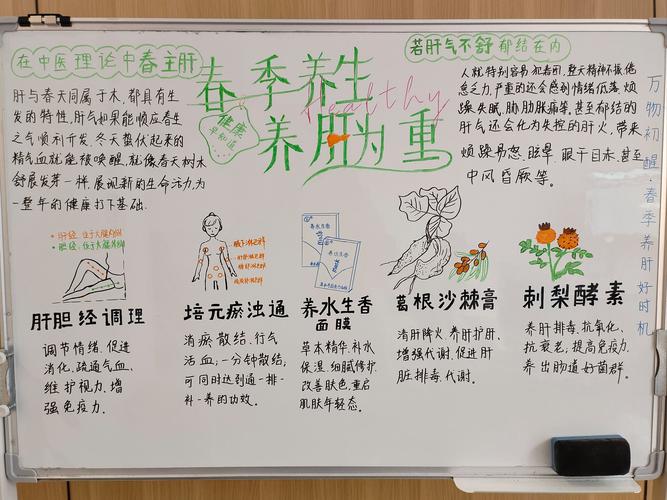 在中医理论中春主肝
肝与春天同属于木，都具有生
发的特性，肝气如果能顺应春生
之气顺利升发，冬天蛰伏起来的
精气血就能被唤醒，就像春天树木
舒展发芽一样，展现新的生命活力，为
一整年的健康打下基础.
春季养生
Healthy
养肝为重
健康
早知道
若肝气不舒 郁结在内
人就特别容易犯春困，整天精神不振，倦
怠乏力，严重的还会感到情绪低落，烦
躁失眠，胁肋胀痛等，甚至郁结的
肝气还会化为失控的肝火，带来
烦躁易怒、眩晕、眼干目赤，甚至
中风昏厥等。
万物初醒·春季养肝好时机
肝胆经调理
调节情绪，促进
消化，疏通气血，
维护视力，增
强免疫力.
培元瘀浊通
消瘀散结，行气
活血；一分钟散结，
可同时达到通一排一
补一养的功效。
养水生香
养水生香
面膜
草本精华，补水
保湿，细腻修护，
改善肤色，重启
肌肤年轻态。
葛根沙棘膏
清肝降火，养肝护肝，
增强代谢，促进肝
脏排毒、代谢。
刺梨酵素
养肝排毒，抗氧化，
抗衰老；提高免疫力，
养出肠道好菌群。